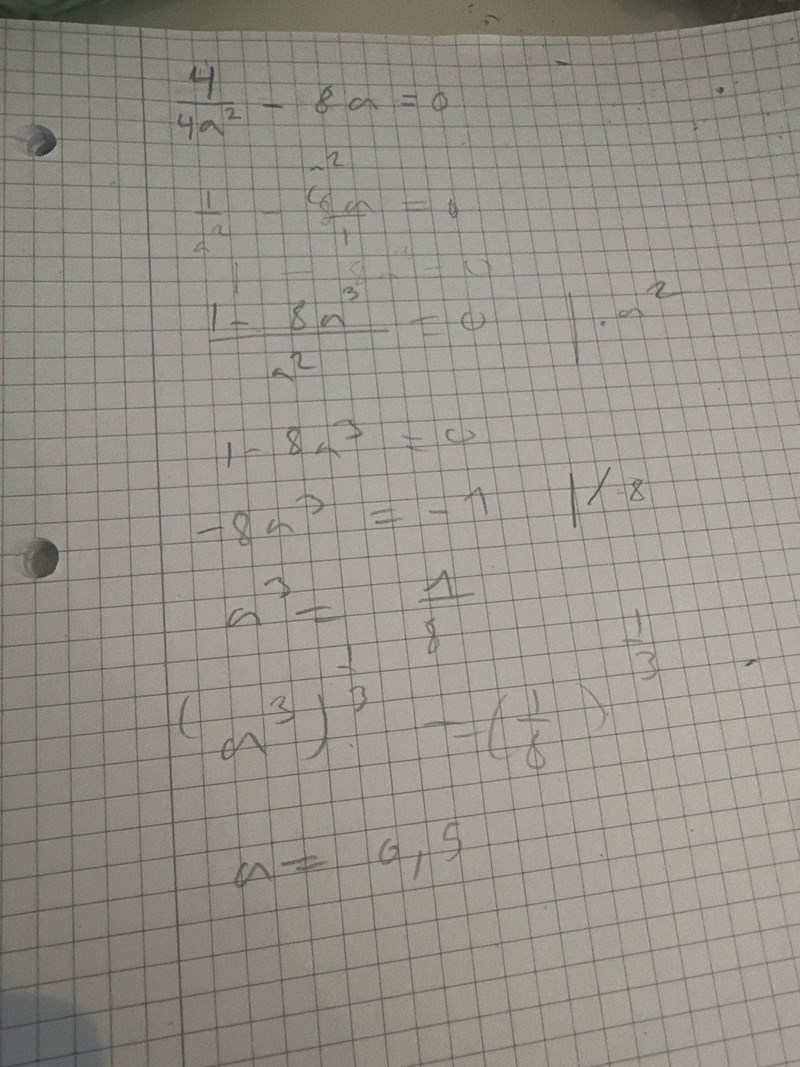 4/4a² - 8a = 0
1/a² - a² 8a/1 = 0
1 - 8a³ = 0
(1 - 8a³)/a² = 0 | · a²
1 - 8a³ = 0
-8a³ = -1 | / -8
a³ = 1/8
(a³)^1/3 = (1/8)^1/3
a = 0,5